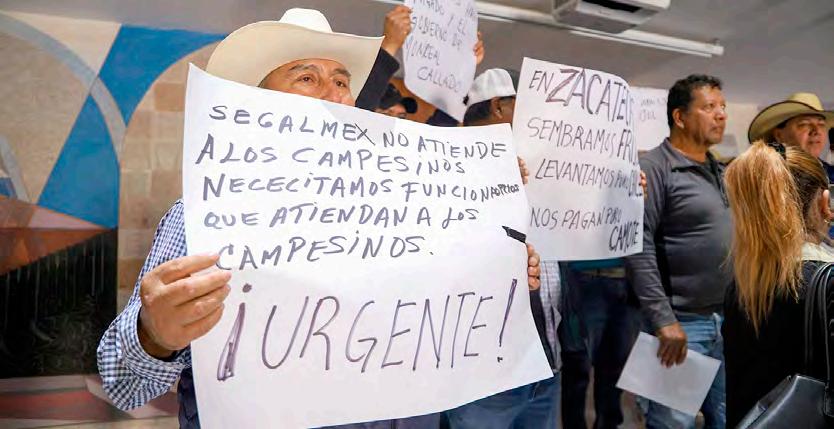 SEGALMEX NO ATIENDE
A LOS CAMPESINOS
NECECITAMOS FUNCIONARIOS
QUE ATIENDAN A LOS
CAMPESINOS.
¡URGENTE!
Y EL
GOBIERNO DE
MONREAL
CALLADO
EN ZACATECAS
SEMBRAMOS
LEVANTAMOS PURO
NOS PAGAN PURO
CAMOTE